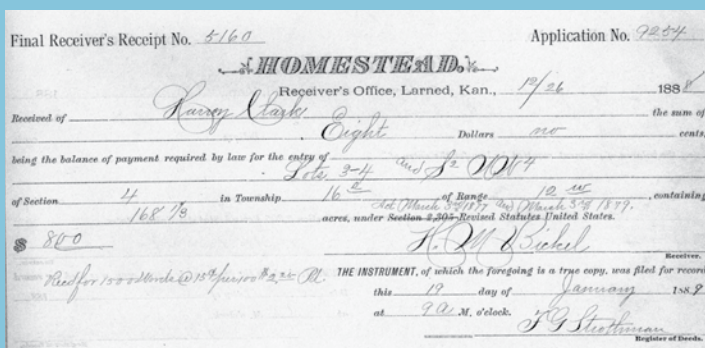 Final Receiver's Receipt No. 5160 Application No. 9254
HOMESTEAD.
Receiver's Office, Larned, Kan., 12/26 1888
Received of Harvey Clark the sum of
Eight Dollars no cents,
being the balance of payment required by law for the entry of
Lots 3-4 and S2 NW4
of Section 4 in Township 16 of Range 12 w, containing
Act March 3rd 1877 and March 3rd 1879.
168 1/3 acres, under Section 2,305 Revised Statutes United States.
$ 800 H. M. Bickel
Receiver.
Recd for 1500 Words @ 15¢ per 100 $2.25 Pd. THE INSTRUMENT, of which the foregoing is a true copy, was filed for record
this 19 day of January 1889
at 9 A M. o'clock.
F G Strothman
Register of Deeds.